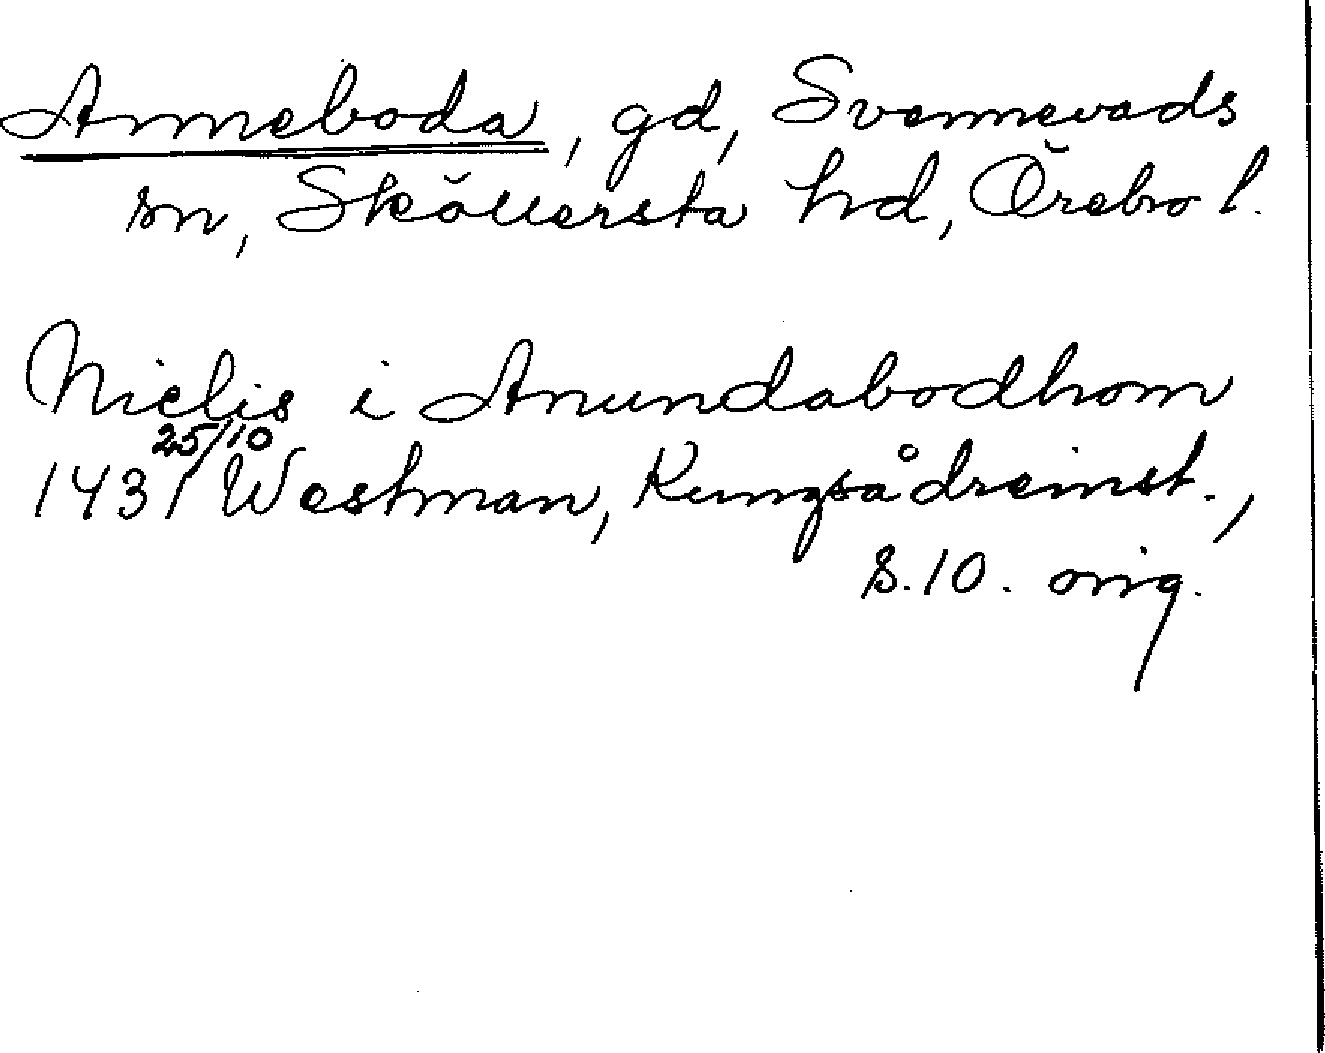 Anneboda, gd, Svennevads
sn, Sköllersta hd, Örebro l.
Nielis i Anundabodhom
25/10
1431 Westman, Kungsådreinst.,
s. 10. orig.